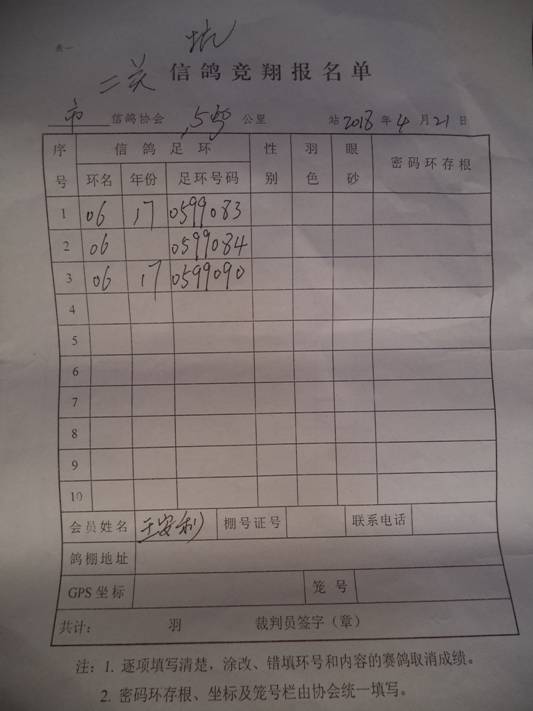 表一
二关
信鸽竞翔报名单
市 信鸽协会 公里 站 2018 年 4 月 21 日
序号 信鸽足环 性别 羽色 眼砂 密码环存根
环名 年份 足环号码
1 06 17 0599083
2 06 0599084
3 06 17 0599090
4
5
6
7
8
9
10
会员姓名 王安利 棚号证号 联系电话
鸽棚地址
GPS坐标 笼号
共计: 羽 裁判员签字(章)
注:1. 逐项填写清楚,涂改、错填环号和内容的赛鸽取消成绩。
2. 密码环存根、坐标及笼号栏由协会统一填写。